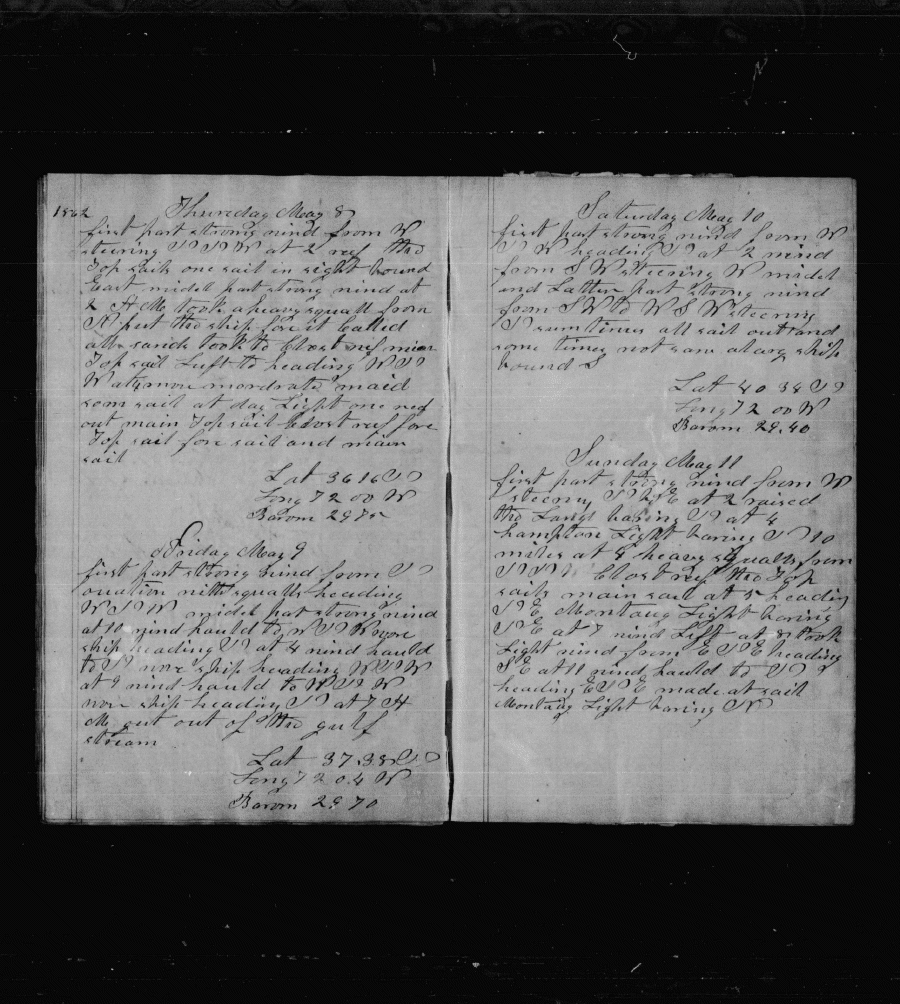 1862
Thursday May 8
first part strong wind from W
steering N N W at 2 reef the
Top sails one sail in sight bound
East midel part strong wind at
2 A M took a heavy squall from
N put the ship fore it Called
all hands took to Clost reef main
Top sail Luft to heading W N
W at 4 more mordrate maid
som sail at day Light one reef
out main Top sail Clost reef fore
Top sail fore sail and main
sail
Lat 36 16 N
Long 72 00 W
Barom 29 75
Friday May 9
first part strong wind from N
with squalls heading
W N W midel part strong wind
at 10 wind hauld to W N W wore
ship heading N at 4 wind hauld
to N wore ship heading W N W
at 9 wind hauld to W N W
wore ship heading N at 7 A
M got out of the gulf
stream
Lat 37.38 N
Long 72 04 W
Barom 29 70
Saturday May 10
first part strong wind from W
N W heading N at 2 wind
from S W steering N midel
and Latter part strong wind
from S W to W S W steering
N sum times all sail out and
some times not som at arg ship
bound S
Lat 40 34 N
Long 72 00 W
Barom 29.40
Sunday May 11
first part strong wind from W
steering N N E at 2 raised
the Land baring N at 4
hampton Light baring N 10
miles at 4 heavy squalls from
N N Clost reef the top
sails main sail at 5 heading
N E Montaug Light baring
N E at 7 wind Left at 8 took
Light wind from E N E heading
S E at 11 wind hauld to N
heading E N E made at sail
Montaug Light baring N